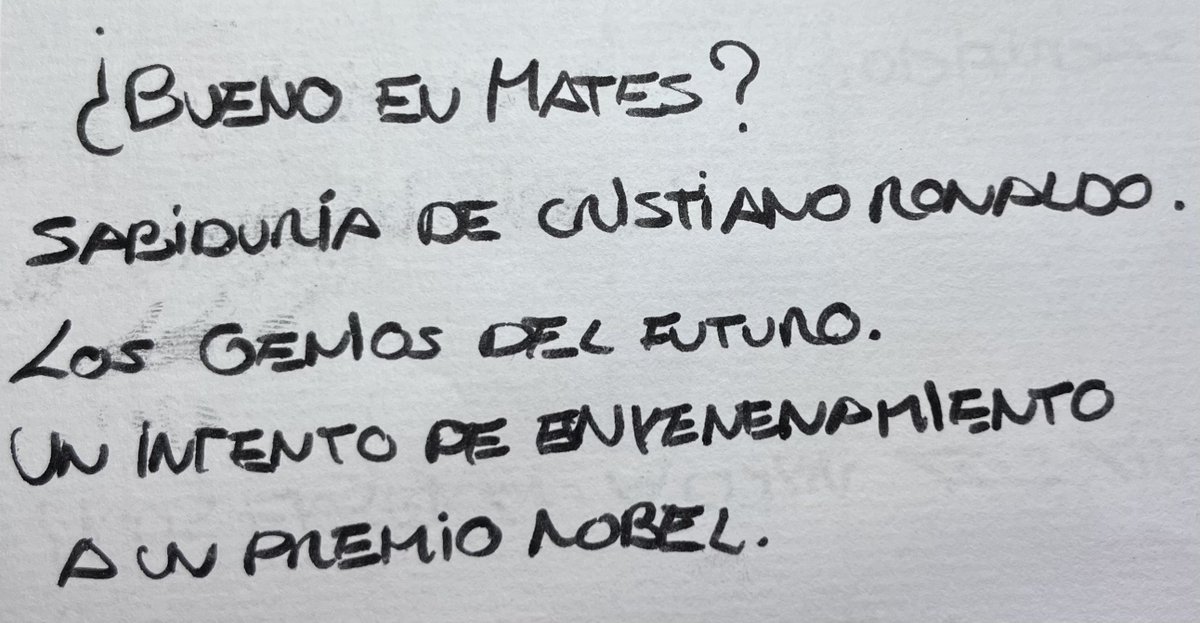 ¿BUENO EN MATES?
SABIDURÍA DE CRISTIANO RONALDO.
LOS GENIOS DEL FUTURO.
UN INTENTO DE ENVENENAMIENTO
A UN PREMIO NOBEL.